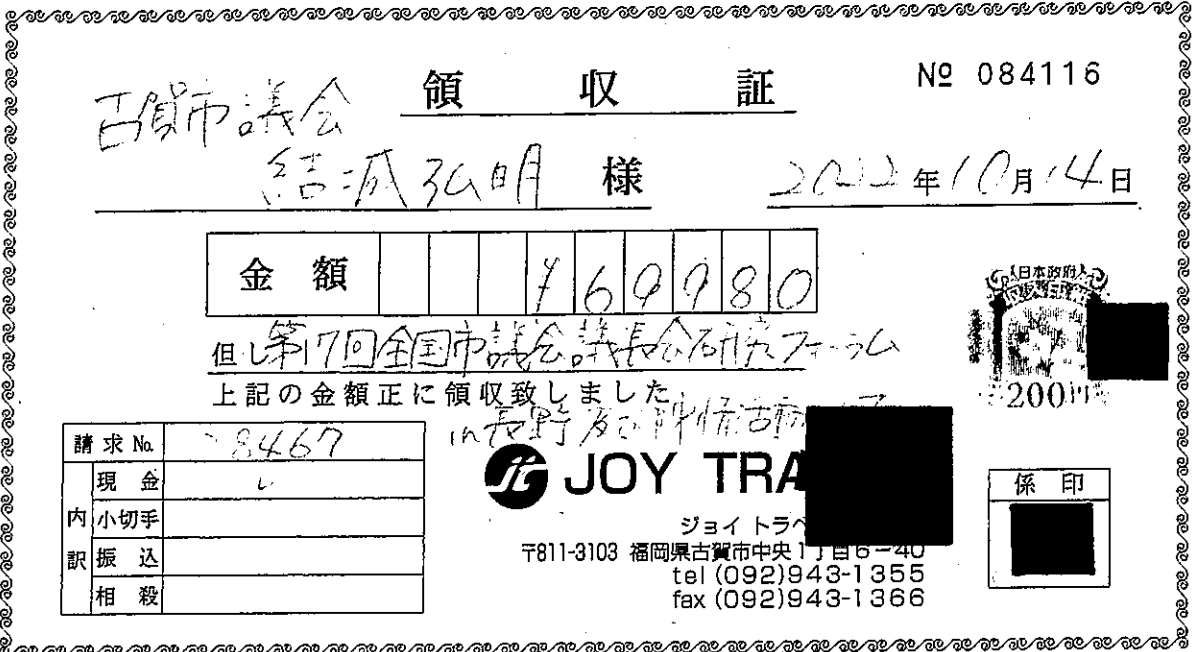 領収証
№ 084116
古賀市議会
結城弘明 様
2022年10月14日
金額 ¥69980
但し第17回全国市議会議長会研究フォーラム
上記の金額正に領収致しました
in 長野及び
日本政府
200円
請求No. 8467
内訳
現金 レ
小切手
振込
相殺
JOY TRA
ジョイ トラベ
〒811-3103 福岡県古賀市中央1丁目6-40
tel (092)943-1355
fax (092)943-1366
係印